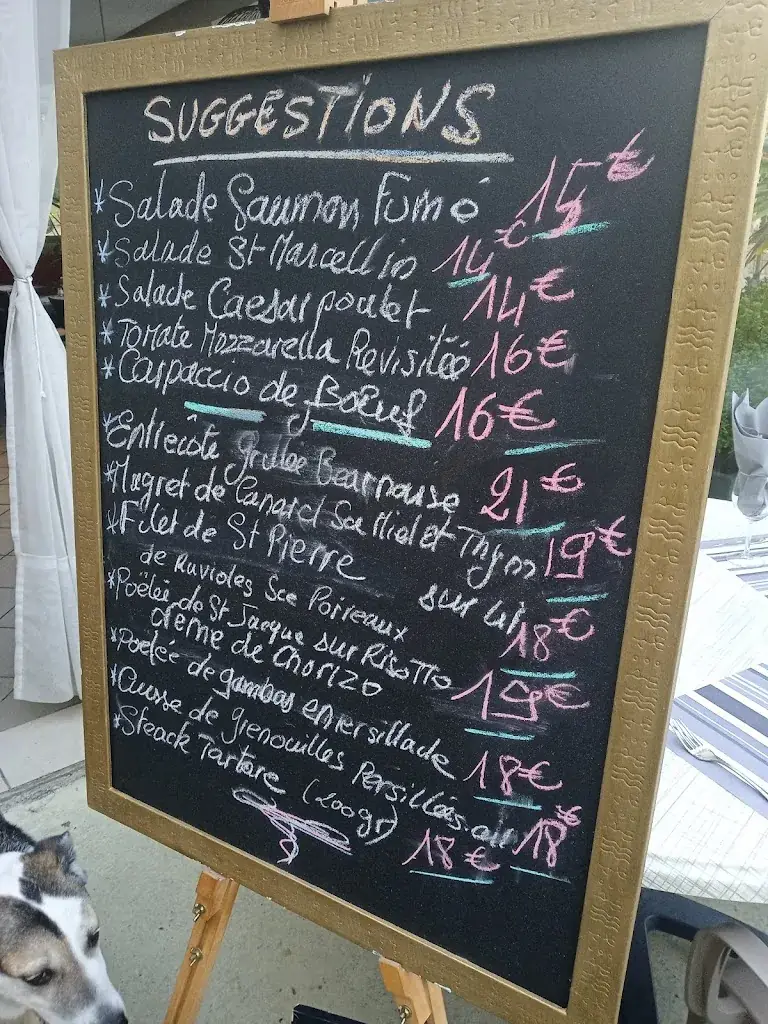 SUGGESTIONS
* Salade Saumon Fumé 15€
* Salade St Marcellin 14€
* Salade Caesar poulet 14€
* Tomate Mozzarella Revisitée 16€
* Carpaccio de Boeuf 16€
* Entrecôte grillée Bearnaise 21€
* Magret de Canard Sce Miel et Thym 19€
* Filet de St Pierre sur lit
de Ravioles Sce Poireaux 18€
* Poêlée de St Jacque sur Risotto
crème de Chorizo 19€
* Poêlée de gambas en persillade 18€
* Cuisse de grenouilles Persillées 18€
* Steack Tartare (200gr) 18€